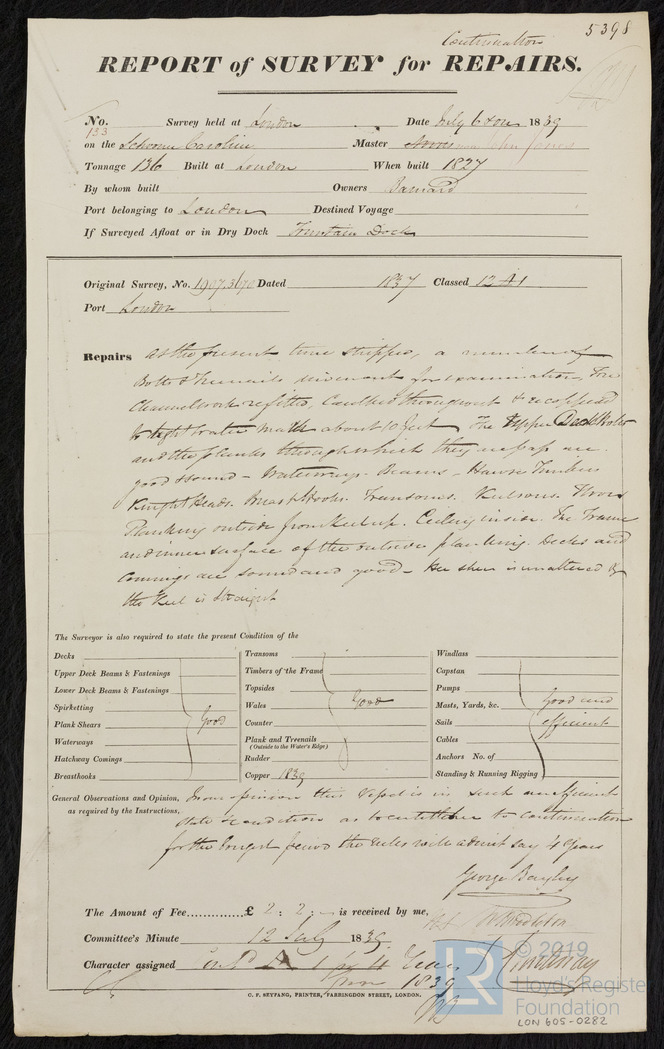 5398
Continuation
REPORT of SURVEY for REPAIRS.
No. 133 Survey held at London Date July 6 1839
on the Schooner Caroline Master John Jones
Tonnage 136 Built at London When built 1827
By whom built Owners Barnard
Port belonging to London Destined Voyage
If Surveyed Afloat or in Dry Dock Fountain Dock
Original Survey, No. Dated 1837 Classed 12 A1
Port London
Repairs At the present time stripped, a number of
Bolts & Treenails driven out for examination, Four
Channelwork refitted, Caulked throughout & recoppered
to light water mark about 10 feet. The Upper Deck Bolts
and the planks through which they pass are
good & sound - Waterways - Beams - Hawse Timbers
Knight Heads. Breast Hooks. Transoms. Keelsons. Floors
Planking outside from Keel up. Ceiling inside. The Frame
and inner surface of the outside planking. Decks and
Comings are sound and good - Her sheer is unaltered &
the Keel is straight
The Surveyor is also required to state the present Condition of the
Decks
Upper Deck Beams & Fastenings
Lower Deck Beams & Fastenings
Spirketting
Plank Shears
Good
Waterways
Hatchway Comings
Breasthooks
Transoms
Timbers of the Frame
Topsides
Wales
Good
Counter
Plank and Treenails
(Outside to the Water's Edge)
Rudder
Copper 1839
Windlass
Capstan
Pumps
Masts, Yards, &c.
Good and
Sails
efficient
Cables
Anchors No. of
Standing & Running Rigging
General Observations and Opinion, In my opinion this Vessel is in such an efficient
as required by the Instructions, state & condition as to entitle her to continuation
for the longest period the rules will admit say 4 Years
George Bayley
The Amount of Fee.............. £ 2 : 2 : - is received by me,
Committee's Minute 12 July 1839.
Character assigned 4 Years
from 1839
C. F. SEYFANG, PRINTER, FARRINGDON STREET, LONDON.
LR
© 2019
Lloyd's Register
Foundation
LON 605-0282